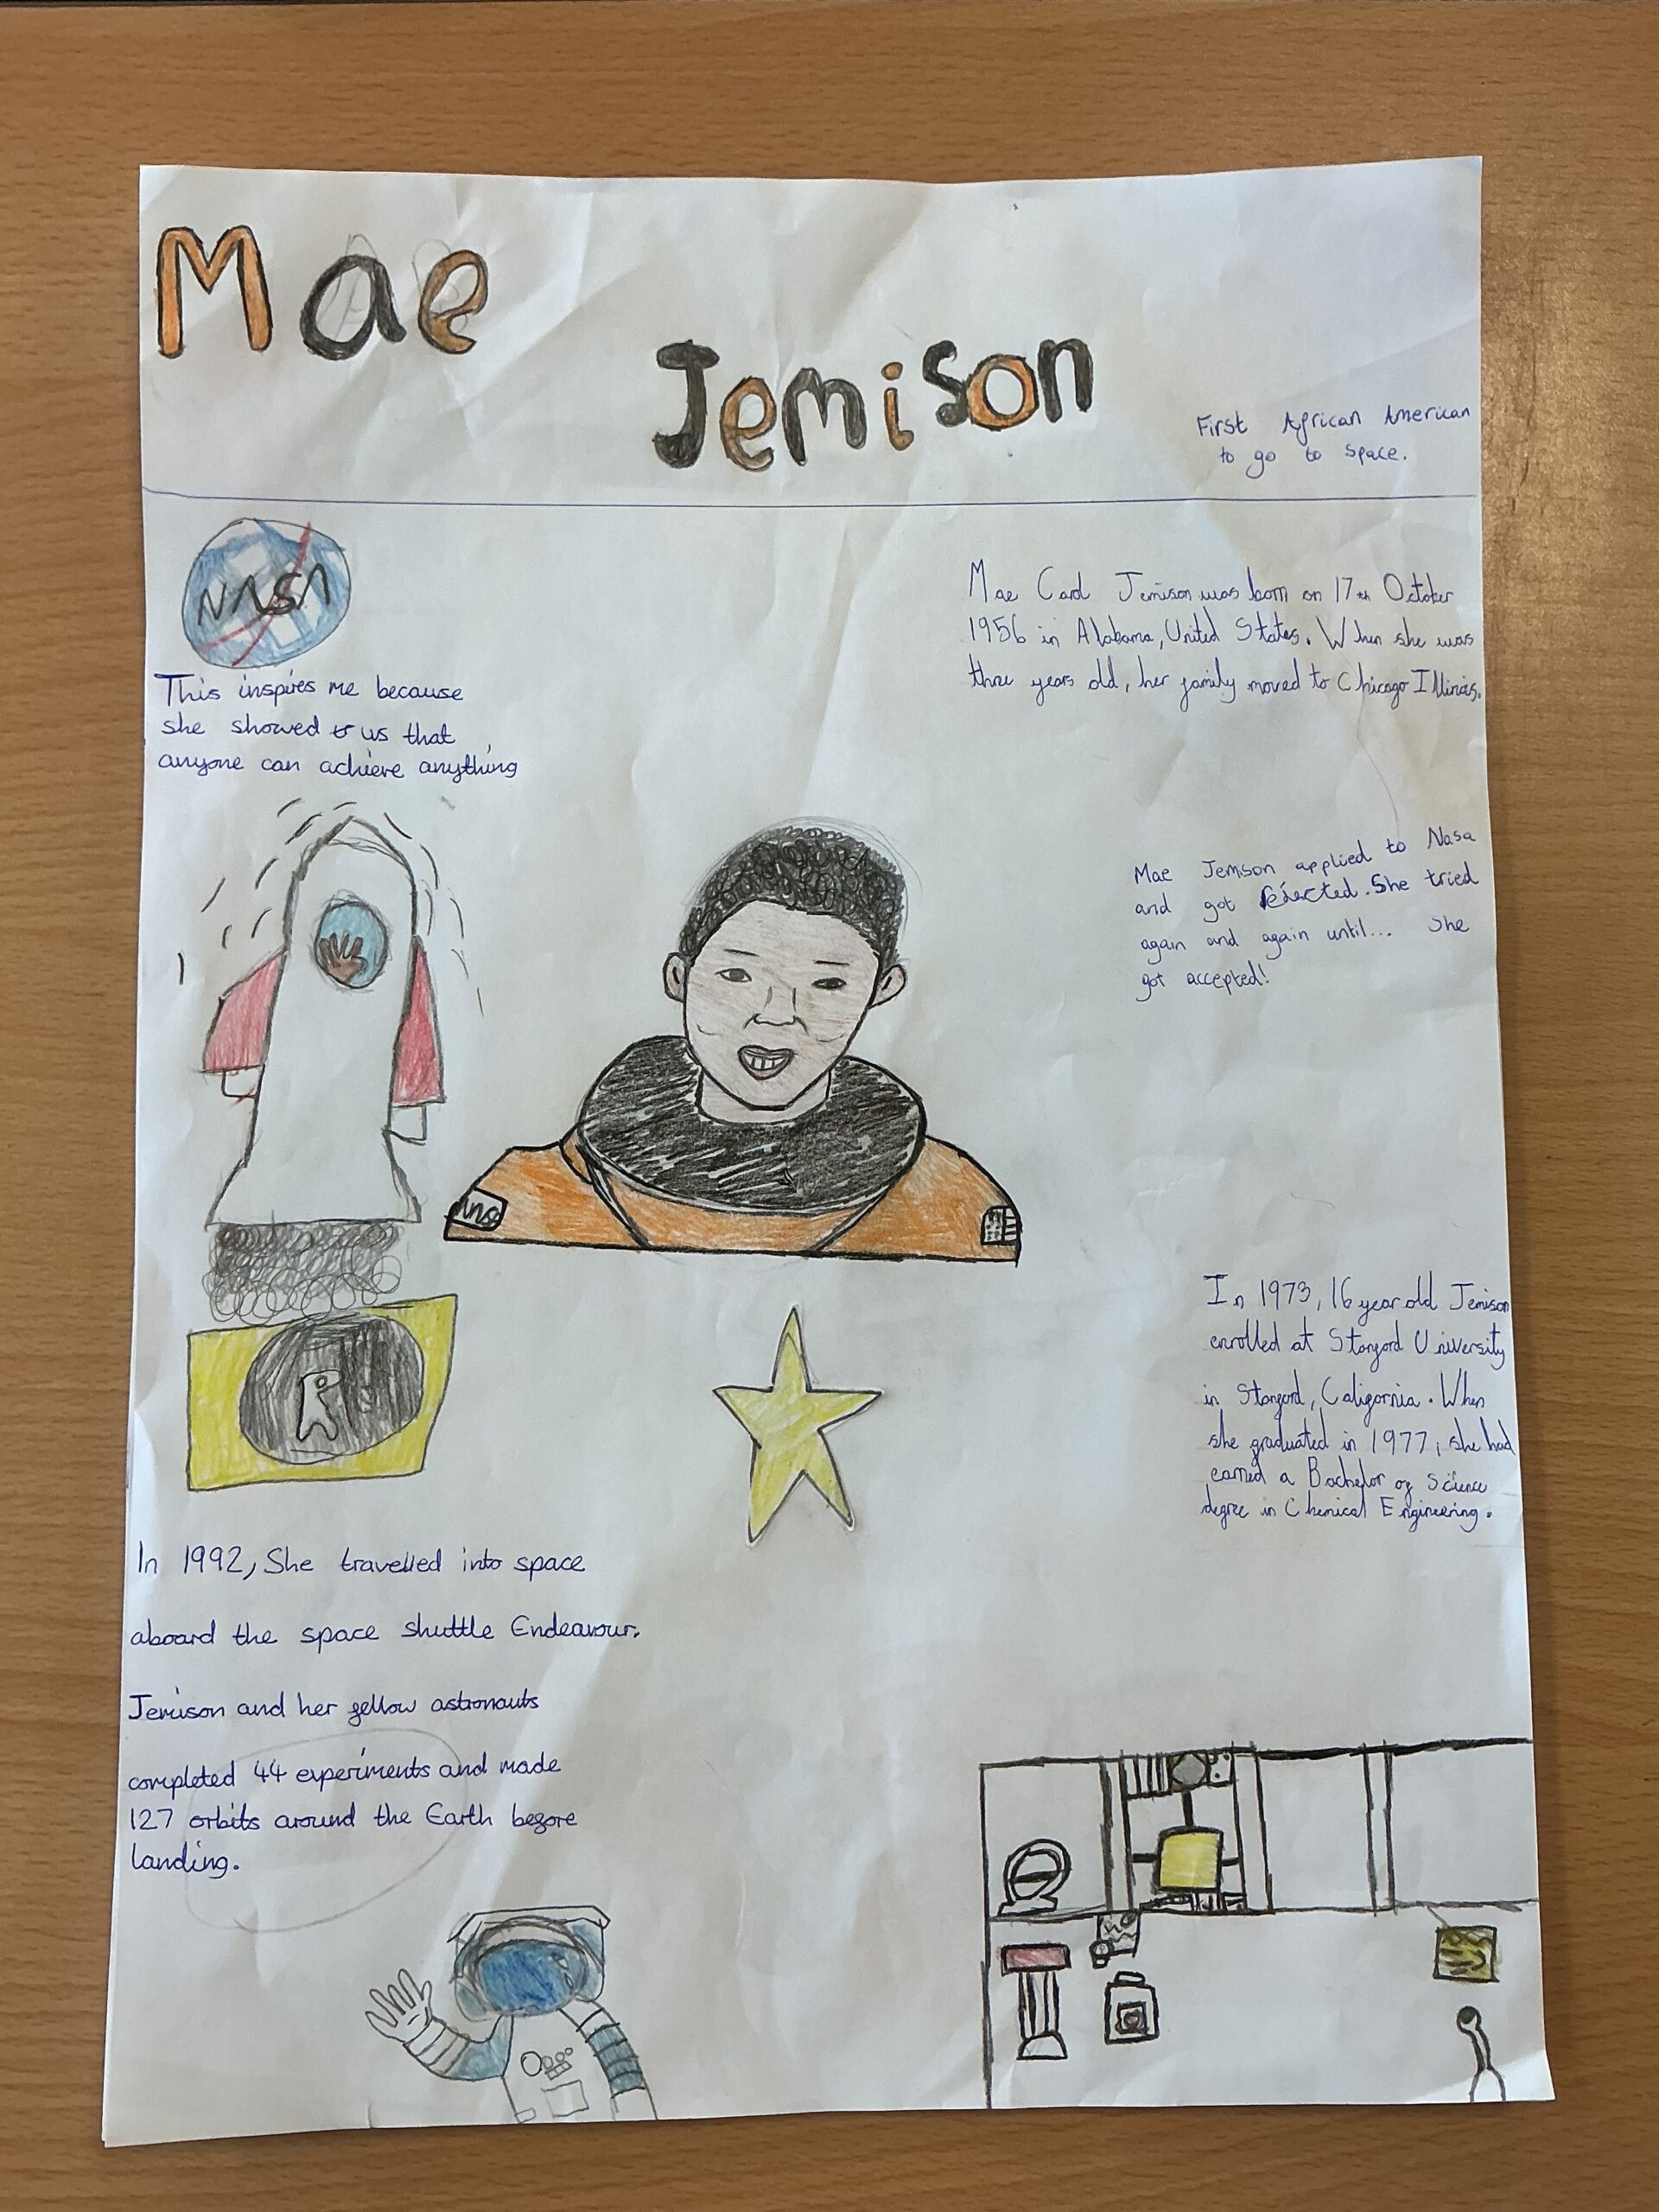 Mae
Jemison
First African American
to go to space.
NASA
This inspires me because
she showed to us that
anyone can achieve anything
Mae Carol Jemison was born on 17th October
1956 in Alabama, United States. When she was
three years old, her family moved to Chicago Illinois.
Mae Jemison applied to Nasa
and got rejected. She tried
again and again until... she
got accepted!
In 1973, 16 year old Jemison
enrolled at Stanford University
in Stanford, California. When
she graduated in 1977, she had
earned a Bachelor of Science
degree in Chemical Engineering.
In 1992, She travelled into space
aboard the space shuttle Endeavour.
Jemison and her fellow astronauts
completed 44 experiments and made
127 orbits around the Earth before
landing.